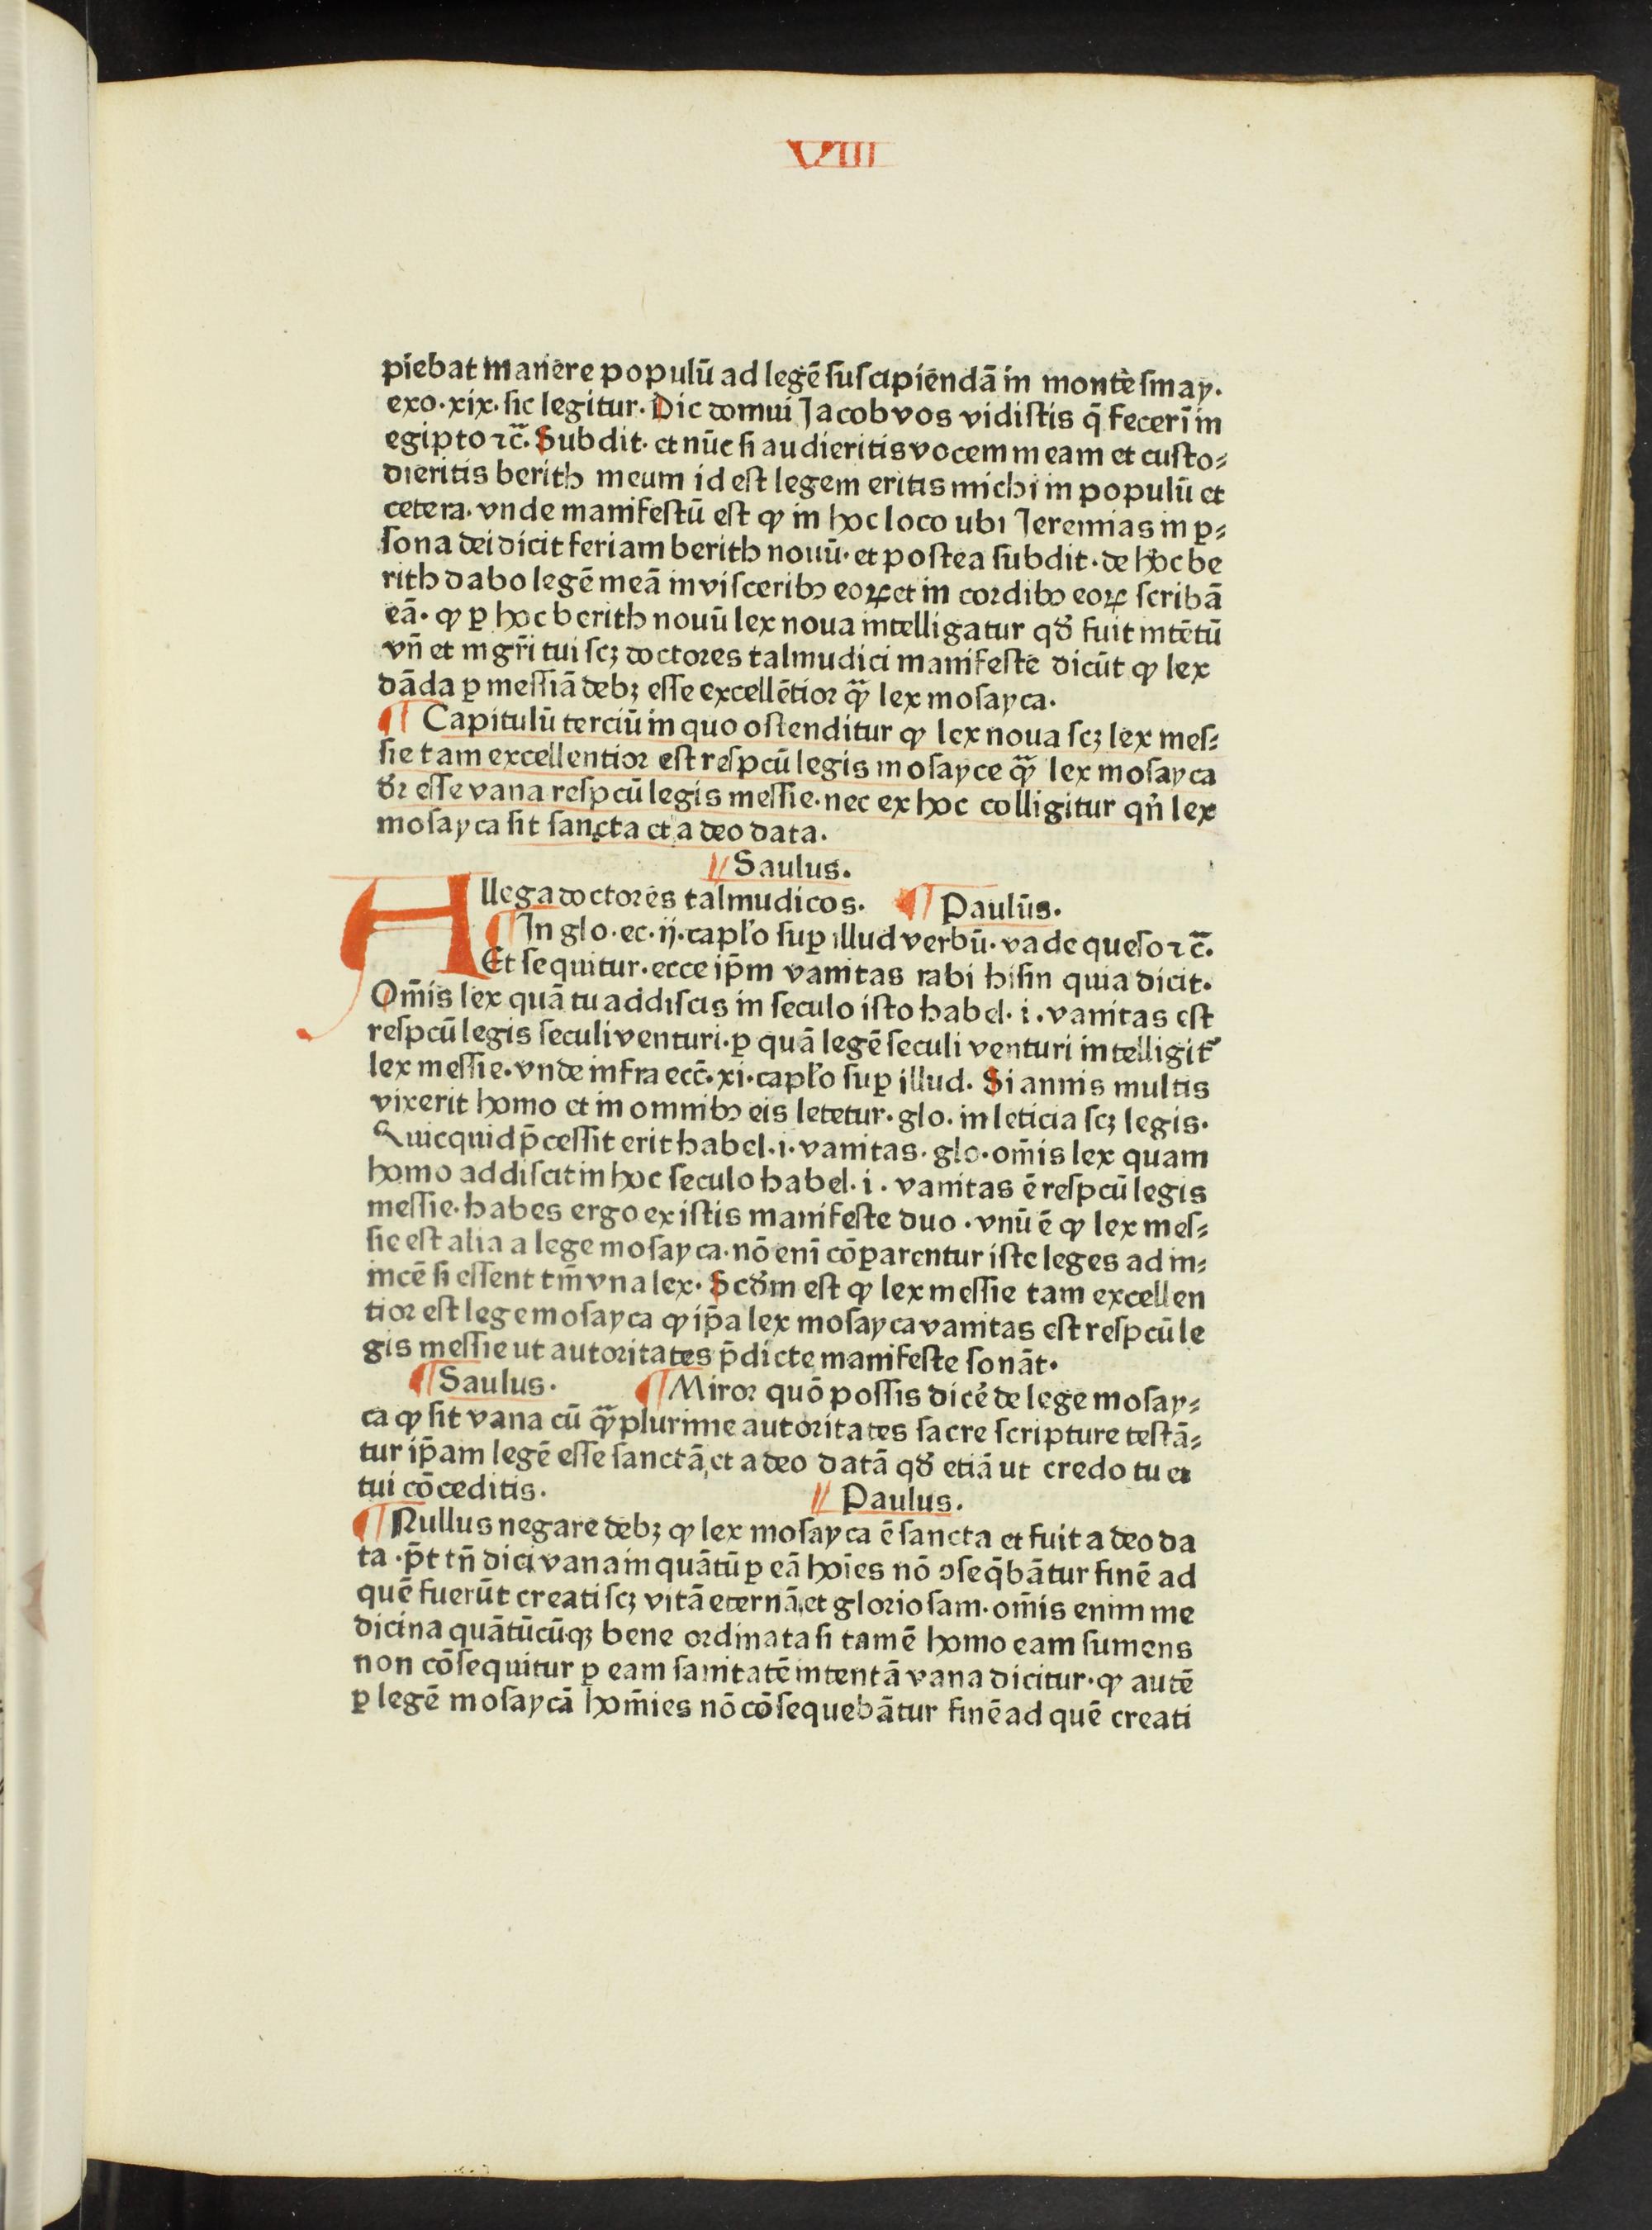 VIII
piebat manere populū ad legē ſuſcipiendā in monte ſinay.
exo.xix. ſic legitur. Dic domui Jacob vos vidiſtis q̄ fecerī in
egipto ⁊c̄. Subdit. et nūc ſi audieritis vocem meam et cuſto⸗
dieritis berith meum id eſt legem eritis michi in populū et
cetera. vnde manifeſtū eſt ꝙ in hoc loco ubi Jeremias in ꝑ⸗
ſona dei dicit feriam berith nouū. et poſtea ſubdit. de hoc be
rith dabo legē meā in viſceribꝰ eoꝝ et in cordibꝰ eoꝝ ſcribā
eā. ꝙ ꝑ hoc berith nouū lex noua intelligatur qd̓ fuit intētū
vn̄ et mgr̄i tui ſcꝫ doctores talmudici manifeſte dicūt ꝙ lex
dāda ꝑ meſſiā debꝫ eſſe excellētior qͣ̄ lex moſayca.
¶ Capitulū terciū in quo oſtenditur ꝙ lex noua ſcꝫ lex meſ⸗
ſie tam excellentior eſt reſpcū legis moſayce qͣ̄ lex moſayca
d̓r eſſe vana reſpcū legis meſſie. nec ex hoc colligitur qn̄ lex
moſayca ſit ſancta et a deo data.
¶ Saulus.
Allega doctores talmudicos. ¶ Paulus.
¶ In glo. ec. ij. capl̓o ſuꝑ illud verbū. vade queſo ⁊c̄.
Et ſequitur. ecce ip̄m vanitas rabi hiſin quia dicit.
Om̄is lex quā tu addiſcis in ſeculo iſto habel. i. vanitas eſt
reſpcū legis ſeculi venturi. ꝑ quā legē ſeculi venturi intelligit᷑
lex meſſie. vnde infra ecc̄. xi. capl̓o ſuꝑ illud. Si annis multis
vixerit homo et in omnibꝰ eis letetur. glo. in leticia ſcꝫ legis.
Quicquid p̄ceſſit erit habel. i. vanitas. glo. om̄is lex quam
homo addiſcit in hoc ſeculo habel. i. vanitas ē reſpcū legis
meſſie. habes ergo ex iſtis manifeſte duo. vnū ē ꝙ lex meſ⸗
ſie eſt alia a lege moſayca. nō enī cōparentur iſte leges ad in⸗
incē ſi eſſent tm̄ vna lex. Scd̓m eſt ꝙ lex meſſie tam excellen
tior eſt lege moſayca ꝙ ip̄a lex moſayca vanitas eſt reſpcū le
gis meſſie ut autoritates p̄dicte manifeſte ſonāt.
¶ Saulus. ¶ Miror quō poſſis dicē de lege moſay⸗
ca ꝙ ſit vana cū qͣ̄plurime autoritates ſacre ſcripture teſtā⸗
tur ip̄am legē eſſe ſanctā, et a deo datā qd̓ etiā ut credo tu et
tui cōceditis. ¶ Paulus.
¶ Nullus negare debꝫ ꝙ lex moſayca ē ſancta et fuit a deo da
ta. p̄t tn̄ dici vana inquātū ꝑ eā hoīes nō ↄſeq̄bātur finē ad
quē fuerūt creati ſcꝫ vitā eternā, et glorioſam. om̄is enim me
dicina quātūcūqꝫ bene ordinata ſi tamē homo eam ſumens
non cōſequitur ꝑ eam ſanitatē intentā vana dicitur. ꝙ autē
ꝑ legē moſaycā hom̄ies nō cōſequebātur finē ad quē creati